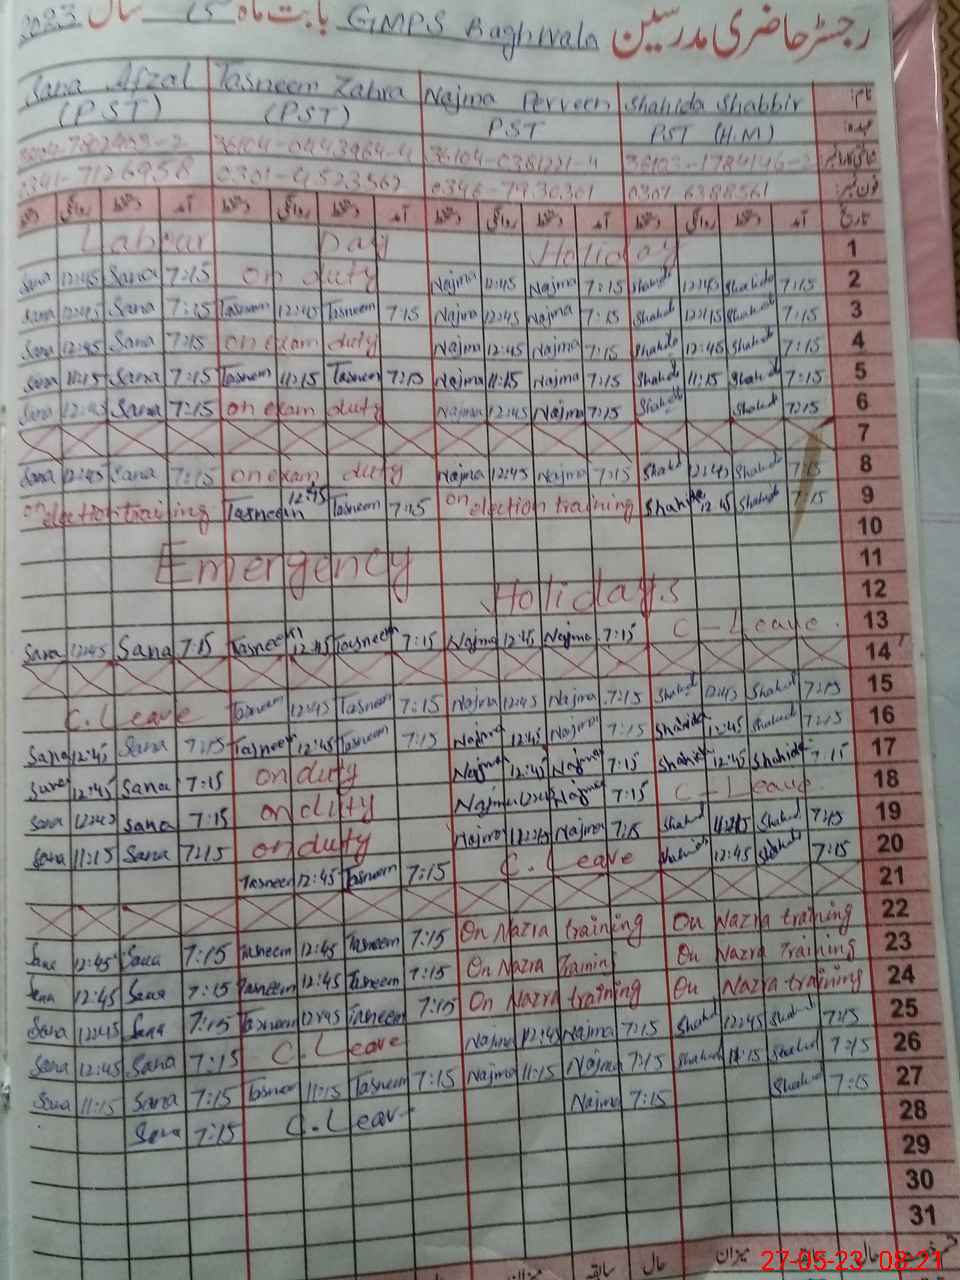 رجسٹر حاضری مدرسین GMPS Baghwala بابت ماہ 5 سال 2023
Sana Afzal Tasneem Zahra Najma Perveen Shahida Shabbir نام:
(PST) (PST) PST PST (H.M) عہدہ:
36104-0443964-4 36104-0381221-4
0341-7126958 0301-4523562 0346-7930301 0307 6388561 فون نمبر:
دستخط روانگی دستخط آمد دستخط روانگی دستخط آمد دستخط روانگی دستخط آمد دستخط روانگی دستخط آمد تاریخ
Labour Day Holiday 1
Sana 12:45 Sana 7:15 on duty Najma 12:45 Najma 7:15 Shahid 12:45 Shahida 7:15 2
Sana 12:45 Sana 7:15 Tasneem 12:45 Tasneem 7:15 Najma 12:45 Najma 7:15 Shahid 12:45 Shahida 7:15 3
Sana 12:45 Sana 7:15 on exam duty Najma 12:45 Najma 7:15 Shahid 12:45 Shahid 7:15 4
Sana 11:15 Sana 7:15 Tasneem 11:15 Tasneem 7:15 Najma 11:15 Najma 7:15 Shahid 11:15 Shahid 7:15 5
Sana 12:45 Sana 7:15 on exam duty Najma 12:45 Najma 7:15 Shahid Shahid 7:15 6
7
Sana 12:45 Sana 7:15 on exam duty Najma 12:45 Najma 7:15 Shahid 12:45 Shahid 7:15 8
on election training Tasneem 12:45 Tasneem 7:15 on election training Shahida 12:45 Shahid 7:15 9
10
Emergency 11
Holidays 12
Sana 12:45 Sana 7:15 Tasneem 12:45 Tasneem 7:15 Najma 12:45 Najma 7:15 C-Leave. 13
14
C. Leave Tasneem 12:45 Tasneem 7:15 Najma 12:45 Najma 7:15 Shahid 12:45 Shahid 7:15 15
Sana 12:45 Sana 7:15 Tasneem 12:45 Tasneem 7:15 Najma 12:45 Najma 7:15 Shahida 12:45 Shahid 7:15 16
Sana 12:45 Sana 7:15 on duty Najma 12:45 Najma 7:15 Shahida 12:45 Shahida 7:15 17
Sana 12:45 Sana 7:15 on duty Najma 12:45 Najma 7:15 C-Leave. 18
Sana 11:15 Sana 7:15 on duty Najma Najma 7:15 Shahid 11:15 Shahid 7:15 19
Tasneem 12:45 Tasneem 7:15 C. Leave Shahid 12:45 Shahid 7:15 20
21
Sana 12:45 Sana 7:15 Tasneem 12:45 Tasneem 7:15 On Nazra training On Nazra training 22
Sana 12:45 Sana 7:15 Tasneem 12:45 Tasneem 7:15 On Nazra Training On Nazra Training 23
Sana 12:45 Sana 7:15 Tasneem 12:45 Tasneem 7:15 On Nazra training On Nazra training 24
Sana 12:45 Sana 7:15 C. Leave Najma 12:45 Najma 7:15 Shahid 12:45 Shahid 7:15 25
Sana 11:15 Sana 7:15 Tasneem 11:15 Tasneem 7:15 Najma 11:15 Najma 7:15 Shahid 11:15 Shahid 7:15 26
Sana 7:15 C. Leav Najma 7:15 Shahid 7:15 27
28
29
30
31
میزان سابقہ حال میزان سابقہ حال
27-05-23 08:21